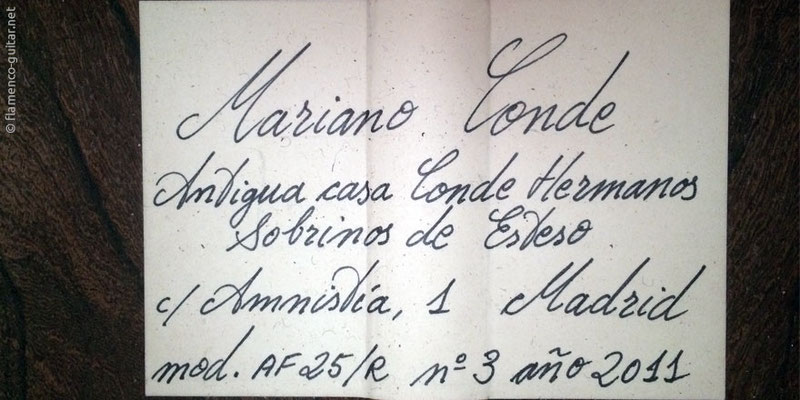 © flamenco-guitar.net
Mariano Conde
Antigua casa Conde Hermanos
Sobrinos de Esteso
c/ Amnistía, 1 Madrid
mod. AF 25/R nº 3 año 2011